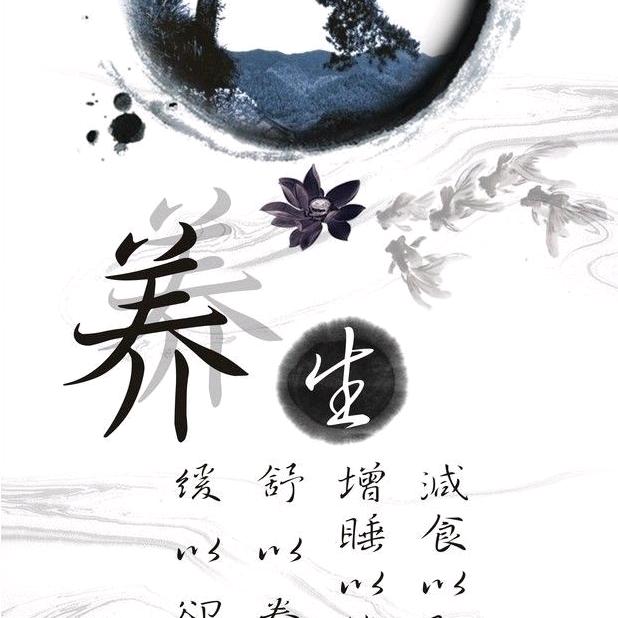 养生
減食以
增睡以
舒以
缓以